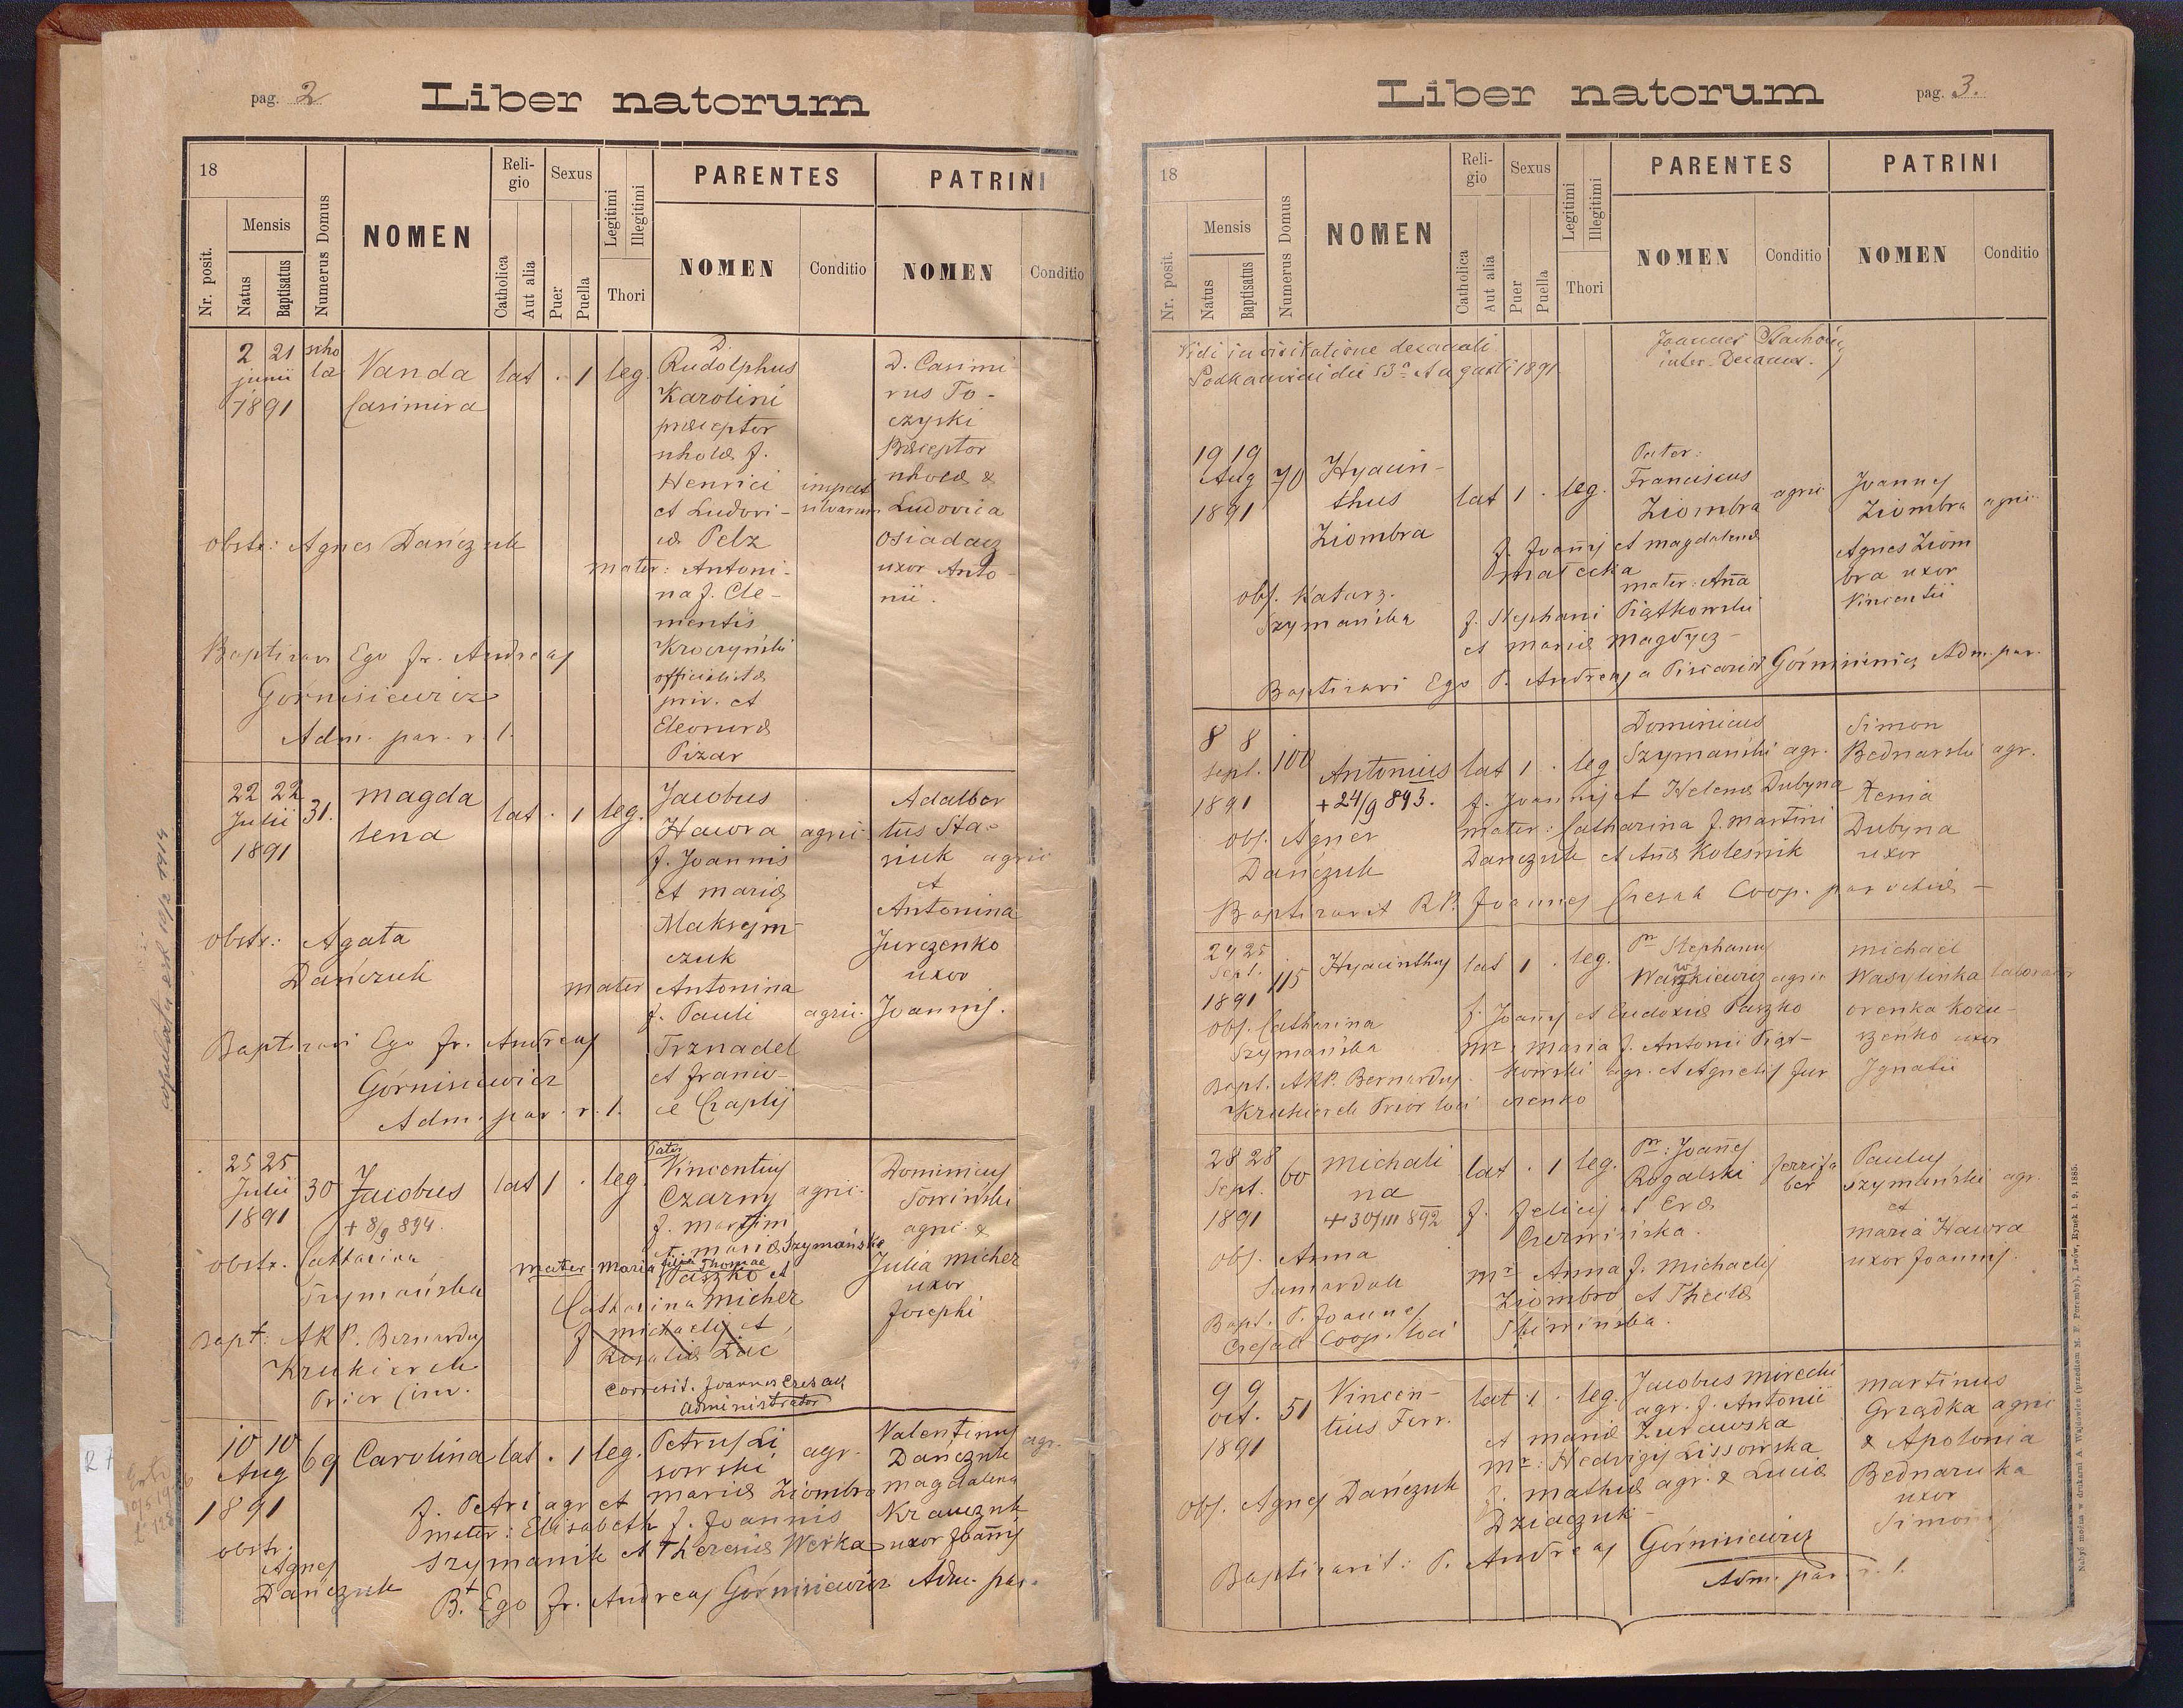 pag. 2
Liber natorum
18
Mensis
Nr. posit.
Natus
Baptisatus
Numerus Domus
NOMEN
Reli-
gio
Catholica
Aut alia
Sexus
Puer
Puella
Legitimi
Illegitimi
Thori
PARENTES
NOMEN
Conditio
PATRINI
NOMEN
Conditio
2 21 scho
junii lae
1891
Vanda
Casimira
lat . 1 leg.
D.
Rudolphus
Karolini
praeceptor
scholae f.
Henrici inspect
et Ludovi- silvarum
cae Pelz
mater: Antoni-
na f. Cle-
mentis
Kroczyński
officialistae
priv. et
Eleonorae
Pizar
D. Casimi
rus To-
czyski
Praeceptor
scholae &
Ludovica
Osiadacz
uxor Anto-
nii.
obstr: Agnes Dańczuk
Baptizavi Ego fr. Andreas
Górnisiewicz
Adm. par. r. l.
22 22
Julii 31.
1891
Magda
lena
lat . 1 leg.
Jacobus
Hawra agric.
f. Joannis
et Mariae
Maksym-
czuk
mater Antonina
f. Pauli agric.
Trznadel
et Franc-
ae Czaplij
Adalber
tus Sta-
siuk agric
et
Antonina
Jurczenko
uxor
Joannis.
obstr: Agata
Dańczuk
Baptizavi Ego fr. Andreas
Górnisiewicz
Adm. par. r. l.
copulata est 1919
25 25
Julii 30
1891
Jacobus
+ 8/9 894.
lat 1 . leg.
Pater
Vincentius
Czarny agric.
f. Martini
et Mariae Szymańska
mater Maria filia Thomae
Paszko et
Catharina Micher
f. Michaelis et
Rosaliae Żuc
Correxit. Joannes Czesak
administrator
Dominicus
Sowiński
agric. &
Julia Micher
uxor
Josephi
obstr. Catharina
Szymańska
Bapt: ARP. Bernardus
Krukierek
Prior Conv.
10 10
Aug 69
1891
Carolina lat . 1 leg.
Petrus Li
sowski agr.
f. Petri agr et Mariae Ziombra
mater: Elisabeth f. Joannis
Szymanik et Theresiae Werka
Valentinus agr.
Dańczuk
Magdalena
Krawczuk
uxor Joannis
obstr:
Agnes
Dańczuk
Bt. Ego fr. Andreas Górnisiewicz Adm. par.
Liber natorum
pag. 3.
18
Mensis
Nr. posit.
Natus
Baptisatus
Numerus Domus
NOMEN
Reli-
gio
Catholica
Aut alia
Sexus
Puer
Puella
Legitimi
Illegitimi
Thori
PARENTES
NOMEN
Conditio
PATRINI
NOMEN
Conditio
Vidi in visitatione decanali
Podkamień die 13a Augusti 1891
19 19
Aug 70
1891
Hyacin-
thus
Ziombra
lat 1 . leg.
Pater:
Franciscus
Ziombra agric
f. Joannis et Magdalenae
Małecka
mater: Anna
f. Stephani Piątkowski
et Mariae Magdycz-
Joannes
Ziombra agric.
Agnes Ziom
bra uxor
Vincentii
obs. Katarz.
Szymańska
Baptizavi Ego P. Andreas a Piscaria Górnisiewicz Adm. par.
8 8
sept. 100
1891
Antonius
+ 24/9 893.
lat 1 . leg
Dominicus
Szymański agr.
f. Joannis et Helenae Dubyna
mater: Catharina f. Martini
Dańczuk et Annae Koleśnik
Simon
Bednarski agr.
Xenia
Dubyna
uxor
obs. Agnes
Dańczuk
Baptizavit R.P. Joannes Czesak Coop. parochiae -
24 25
Sept. 115
1891
Hyacinthus lat 1 . leg.
Pr Stephanus
Waszkiewicz agric
f. Joannis et Eudoxiae Paszko
Mr. Maria f. Antonii Piąt-
kowski agr. et Agnetis Jur
czenko
Michael
Wasylinka laborator
Orenka Kozu-
zenko uxor
Ignatii
obs. Catharina
Szymańska
Bapt. ARP. Bernardus
Krukierek Prior loci
28 28
Sept. 60
1891
Michali
na
+ 30/III 892
lat . 1 leg.
Pr: Joannes
Rogalski ferrifa
ber
f. Felicis et Evae
Czerwińska.
Mr Anna f. Michaelis
Ziombro et Theclae
Paulus
Szymański agr.
et
Maria Hawra
uxor Joannis.
obs. Anna
Samardak
Bapt. P. Joannes
Czesak Coop. loci
9 9
Oct. 51
1891
Vincen-
tius Ferr.
lat 1 . leg.
Jacobus Mirecki
agr. f. Antonii
et Mariae Żurawska
Mr: Hedvigis Lissowska
f. Mathiae agr. & Luciae
Dziaczuk-
Martinus
Grządka agric
& Apolonia
Bednarska
uxor
Simonis
obs. Agnes Dańczuk
Baptizavit: P. Andreas Górnisiewicz
Adm. par. r. l.
Nabyć można w drukarni A. Wajdowicz (przedtem H. F. Poremby), Lwów, Rynek l. 9. 1885.